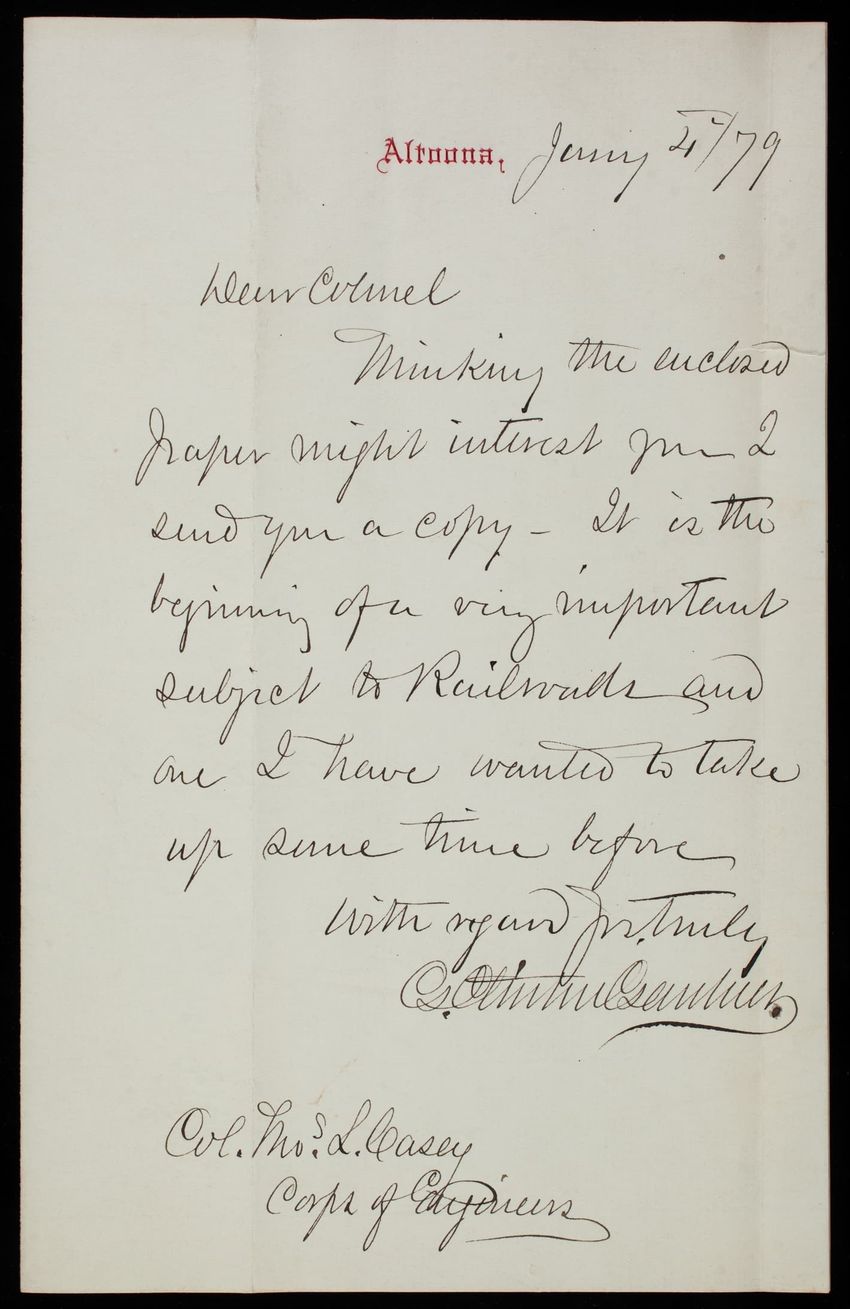 Altoona, Jany 4/79
Dear Colonel
Thinking the enclosed
paper might interest you I
send you a copy - It is the
beginning of a very important
subject to Railroads and
one I have wanted to take
up some time before
With regard Yrs. truly
G. Clinton Gardner.
Col. Thos. L. Casey
Corps of Engineers